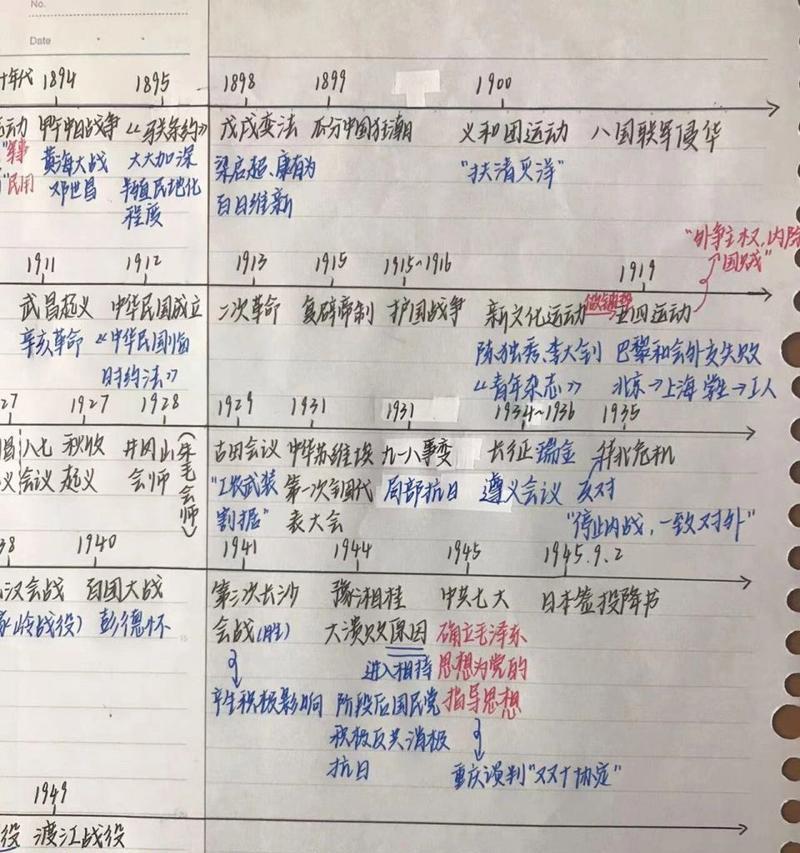 No.
Date
十年代 1894 1895 1898 1899 1900
运动 甲午中日战争 《马关条约》 戊戌变法 瓜分中国狂潮 义和团运动 八国联军侵华
"军事 黄海大战 大大加深 梁启超、康有为 "扶清灭洋"
"民用 邓世昌 半殖民地化 百日维新
程度
"外争主权,内除
国贼"
1911 1912 1913 1915 1915~1916 1919
武昌起义 中华民国成立 二次革命 复辟帝制 护国战争 新文化运动 五四运动
辛亥革命 《中华民国临 陈独秀、李大钊 巴黎和会外交失败
时约法》 《青年杂志》 北京→上海 学生→工人
27 1927 1928 1929 1931 1931 1934~1936 1935
八七 秋收 井冈山 (朱毛会师) 古田会议 中华苏维埃 九一八事变 长征 瑞金 华北危机
会议 起义 会师 "工农武装 第一次全国代 局部抗日 遵义会议 反对
割据" 表大会 "停止内战,一致对外"
38 1940 1941 1944 1945 1945.9.2
汉会战 百团大战 第三次长沙 豫湘桂 中共七大 日本签投降书
岭战役) 彭德怀 会战(胜) 大溃败原因 确立毛泽东
进入相持 思想为党的
产生积极影响 阶段后国民党 指导思想
积极反共消极
抗日 重庆谈判"双十协定"
1949
役 渡江战役